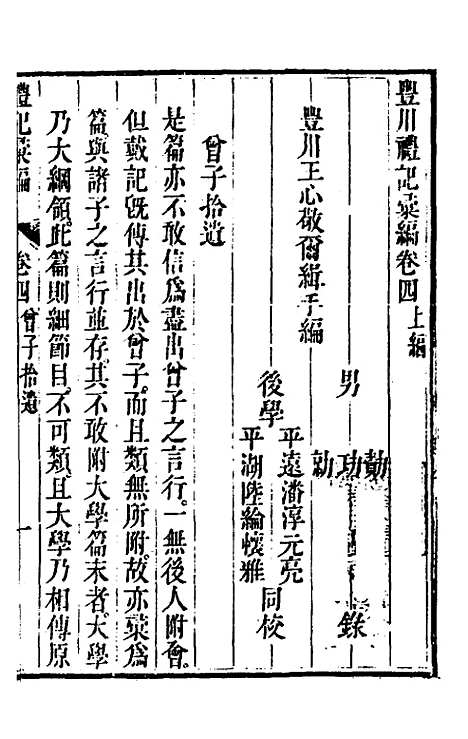 豐川禮記彙編卷四上編
豐川王心敬爾緝手編
男 勍功勷 錄
後學 平遠潘淳元亮 平湖陸綸懷雅 同校
曾子拾遺
是篇亦不敢信為盡出曾子之言行。一無後人附會。
但戴記既傳其出於曾子。而且類無所附。故亦彙為
篇與諸子之言行並存。其不敢附大學篇末者。大學
乃大綱領。此篇則細節目。不可類。且大學乃相傳原
豐記彙編 卷四曾子拾遺 一